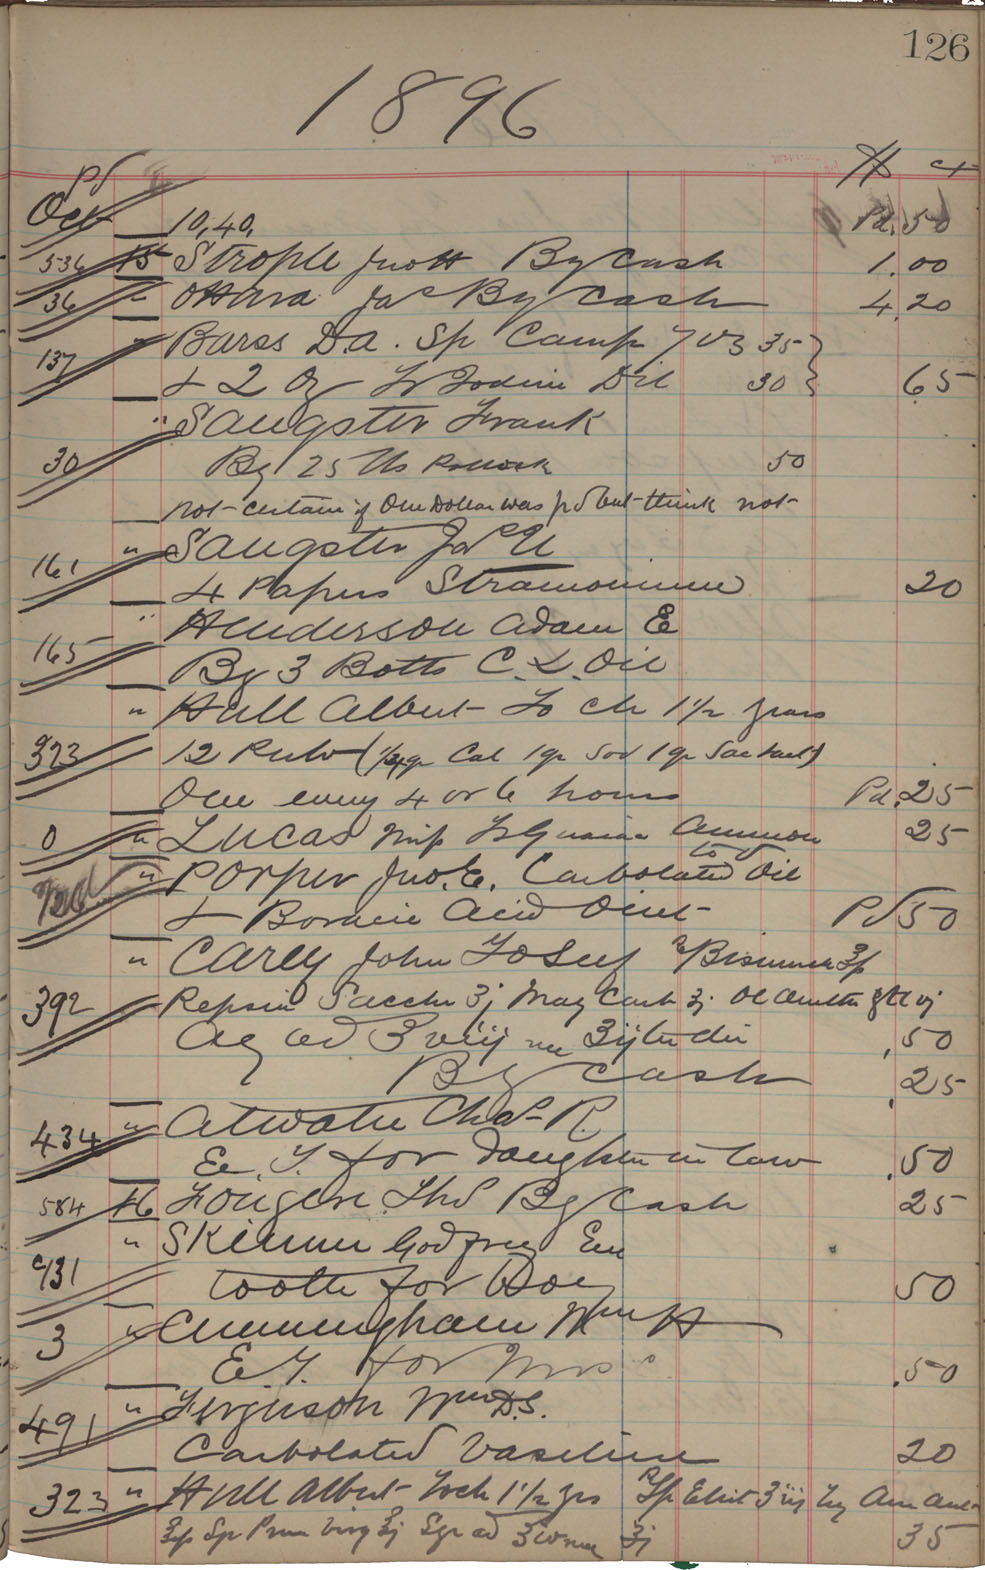 126
1896
pd
$ ct
Oct 10,40, Pd. 50
536 15 Strople Jno H By Cash 1.00
36 " OHara Jas By Cash 4.20
137 " Barss D.a. Sp Camp 7 oz 35
& 2 Oz Tr Iodine Dil 30 65
" Sangster Frank
30 By 25 lbs Pollock 50
not certain if One Dollar was pd but think not
161 " Sangster Jas U
4 Papers Stramonium 20
" Henderson Adam E
165 By 3 Botts C. L. Oil
" Hull Albert To ch 1½ years
323 12 Pulv ( gr Cal 1 gr Sod 1 gr Sac Lact)
One every 4 or 6 hours Pd. 25
0 " Lucas Mrs Tr Guaiac Ammon 25
" Porper Jno. E. Carbolated Oil
& Boracic Acid Oint Pd 50
" Carey John Joseph Bismuth
392 Pepsin Sacch ʒj Mag Carb ʒj Ol Anethi gtt vj
Aq ad ℥viij ʒij ter die .50
By Cash .25
434 " Atwater Chas R.
Ex. T. for Daughter in law .50
584 16 Fougere Thos By Cash 25
" Skinner Godfrey Ex
431 tooth for Boy 50
3 " Cunningham Wm H
E. T. for Mrs .50
491 " Ferguson Wm D.S.
Carbolated Vaseline 20
323 " Hull Albert To ch 1½ yrs
Sp Prun Virg ʒj Syr ad 35